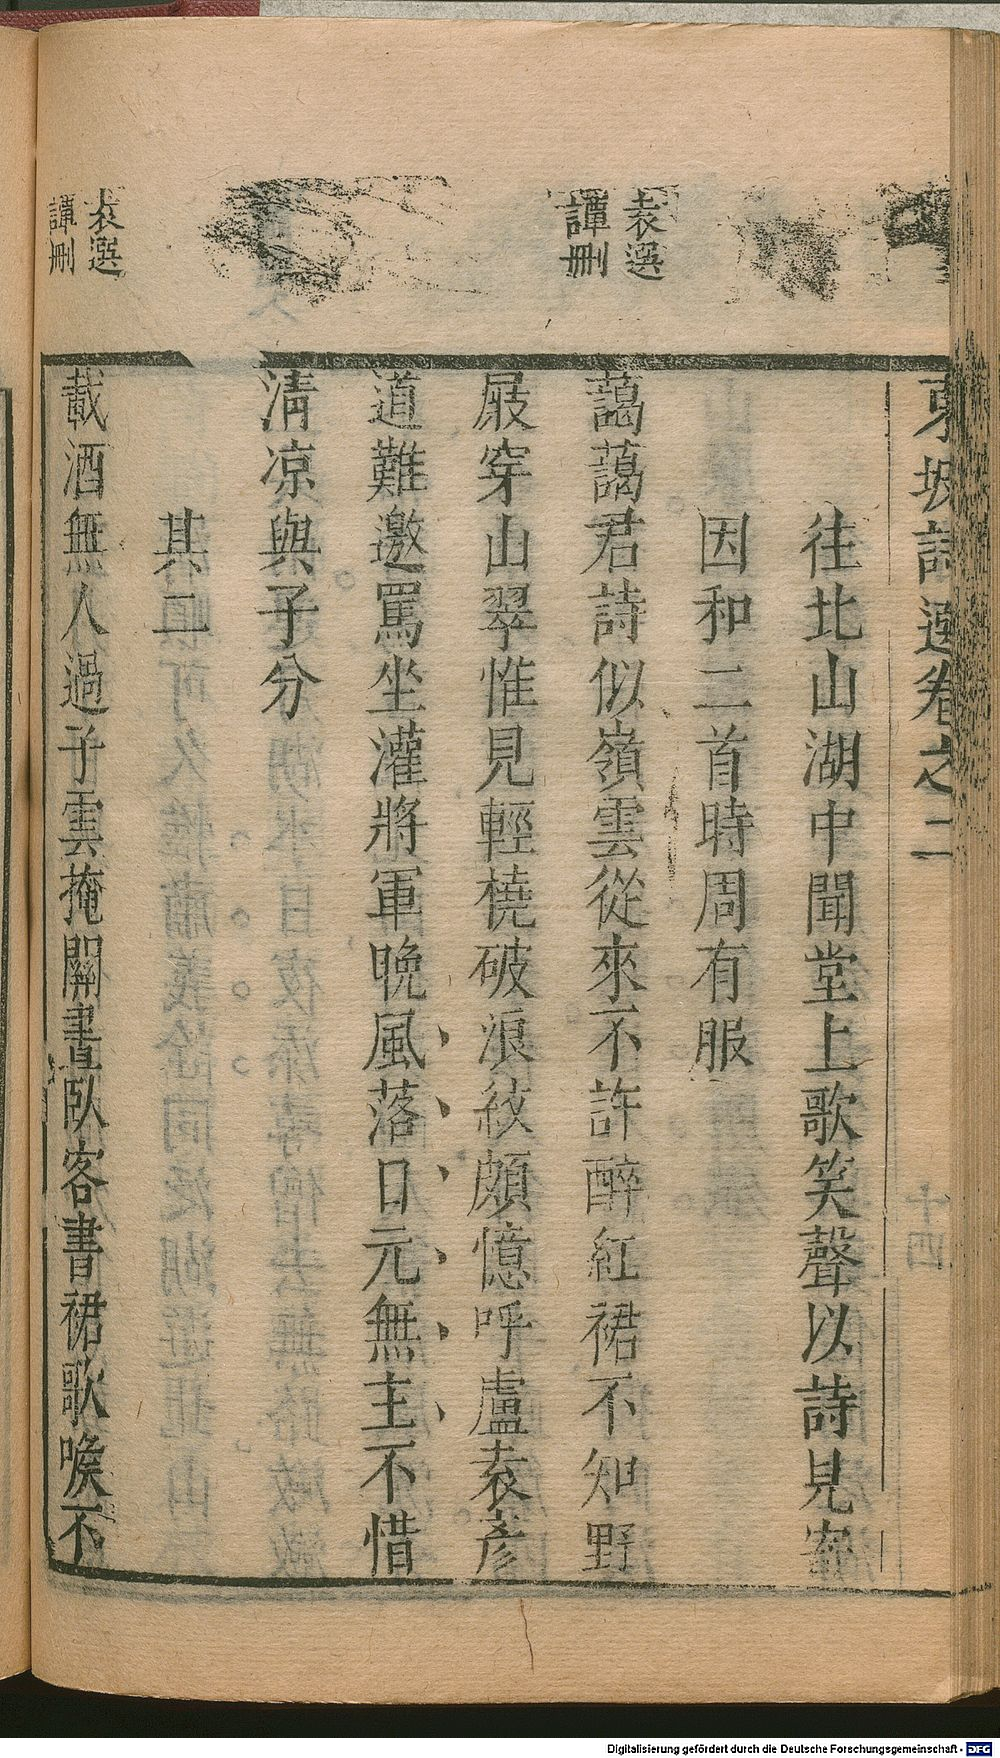 東坡詩選卷之二
往北山湖中聞堂上歌笑聲以詩見寄
因和二首時周有服
袁選
譚刪
藹藹君詩似嶺雲從來不許醉紅裙不知野
屐穿山翠惟見輕橈破浪紋頗憶呼盧袁彥
道難邀罵坐灌將軍晚風落日元無主不惜
清凉與子分
其二
袁選
譚刪
載酒無人過子雲掩關晝臥客書裙歌喉不
Digitalisierung gefördert durch die Deutsche Forschungsgemeinschaft - DFG